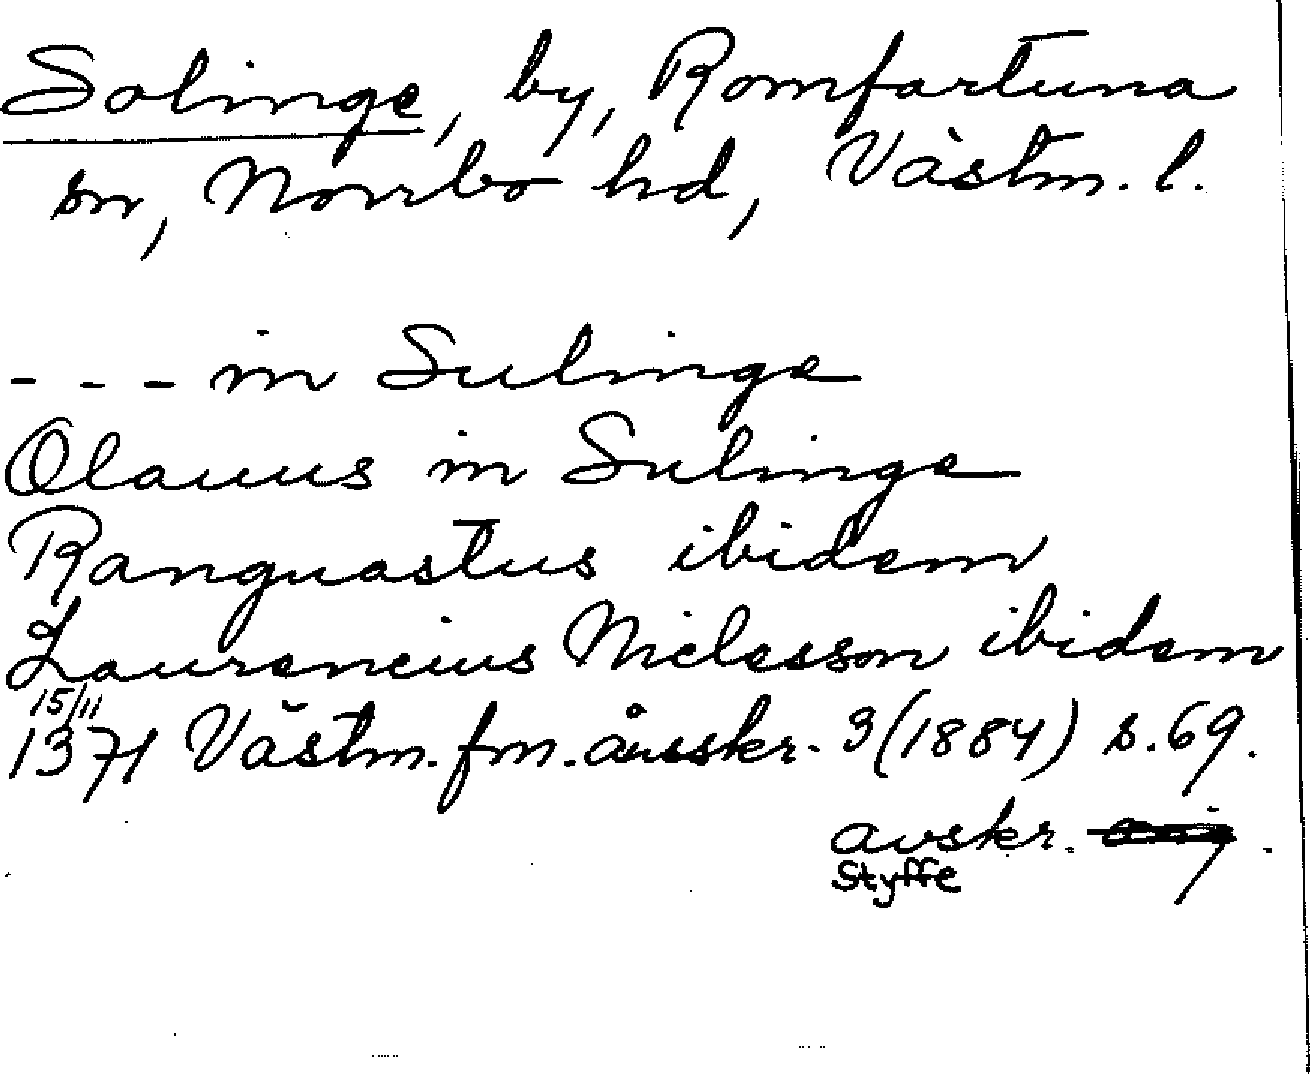 Solinge, by, Romfartuna
sn, Norrbo hd, Västm. l.
- - - in Sulinge
Olauus in Sulinge
Ranguastus ibidem
Laurencius Niclesson ibidem
15/11
1371 Västm. fm. årsskr. 3 (1884) s. 69.
avskr.
Styffe